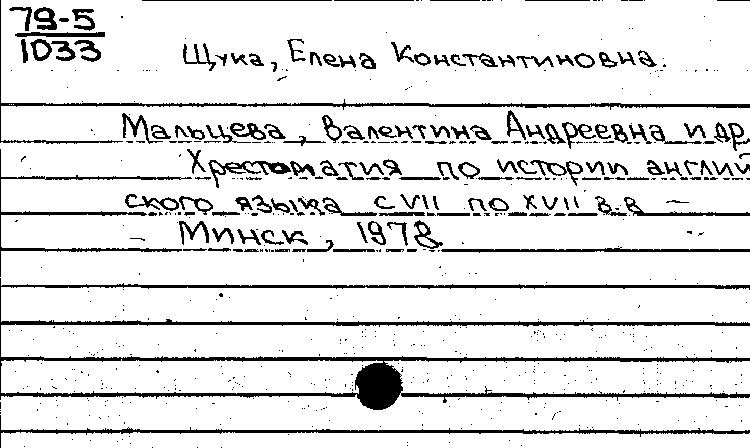 79-5
1033
Щука, Елена Константиновна.
Мальцева, Валентина Андреевна и др.
Хрестоматия по истории англий
ского языка с VII по XVII в.в –
– Минск, 1978